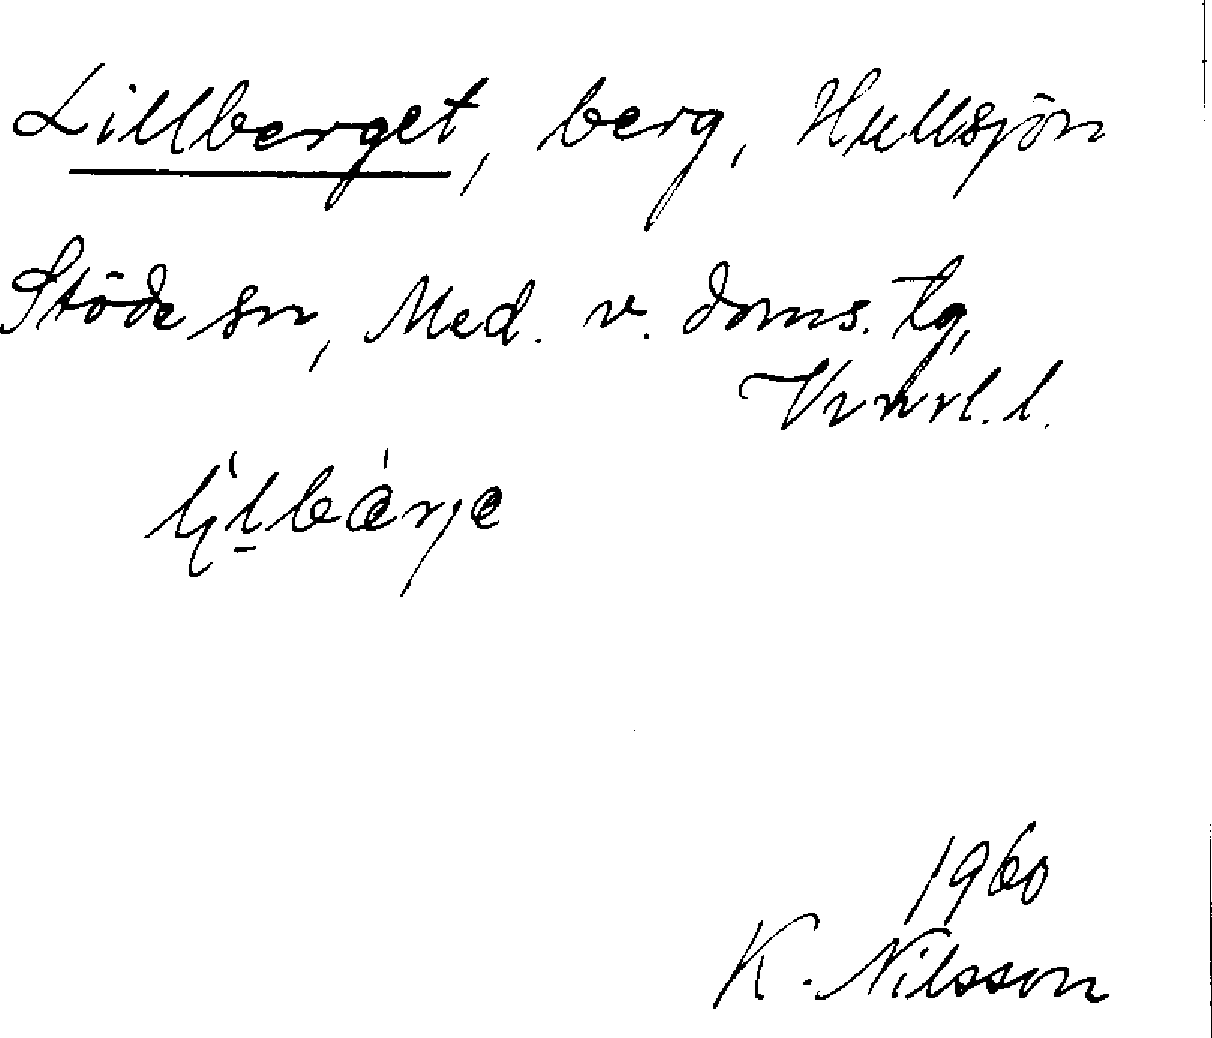 Lillberget, berg, Hullsjön
Stöde sn, Med. v. doms. tg,
Vnrl. l.
1960
K. Nilsson